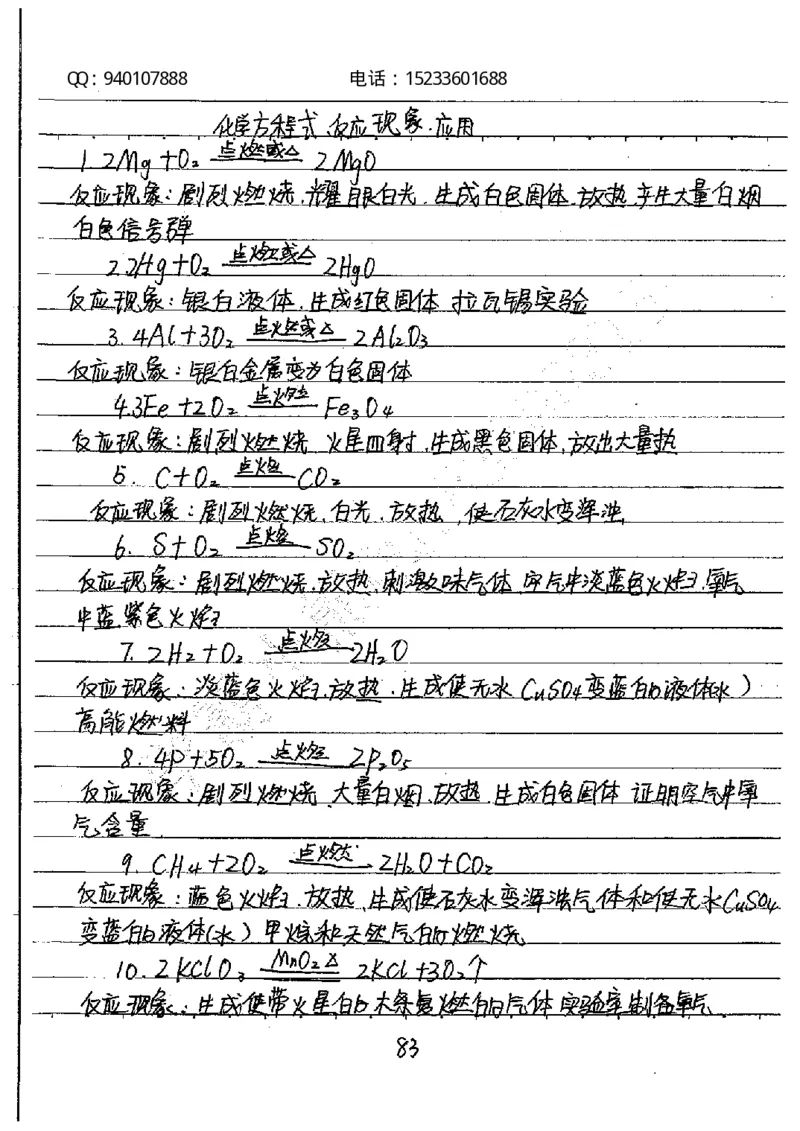 QQ：940107888 电话：15233601688
化学方程式、反应现象、应用
1. 2Mg+O₂ 点燃或△ 2MgO
反应现象：剧烈燃烧，耀眼白光，生成白色固体，放热，产生大量白烟
白色信号弹
2. 2Hg+O₂ 点燃或△ 2HgO
反应现象：银白液体，生成红色固体 拉瓦锡实验
3. 4Al+3O₂ 点燃或△ 2Al₂O₃
反应现象：银白金属变为白色固体
4. 3Fe+2O₂ 点燃 Fe₃O₄
反应现象：剧烈燃烧 火星四射，生成黑色固体，放出大量热
5. C+O₂ 点燃 CO₂
反应现象：剧烈燃烧，白光，放热，使石灰水变浑浊
6. S+O₂ 点燃 SO₂
反应现象：剧烈燃烧，放热，刺激味气体，空气中淡蓝色火焰，氧气
中蓝紫色火焰
7. 2H₂+O₂ 点燃 2H₂O
反应现象：淡蓝色火焰，放热，生成使无水CuSO₄变蓝的液体(水）
高能燃料
8. 4P+5O₂ 点燃 2P₂O₅
反应现象：剧烈燃烧，大量白烟，放热，生成白色固体 证明空气中氧
气含量
9. CH₄+2O₂ 点燃 2H₂O+CO₂
反应现象：蓝色火焰，放热，生成使石灰水变浑浊气体和使无水CuSO₄
变蓝的液体(水）甲烷和天然气的燃烧
10. 2KClO₃ MnO₂ △ 2KCl+3O₂↑
反应现象：生成使带火星的木条复燃的气体 实验室制备氧气
83